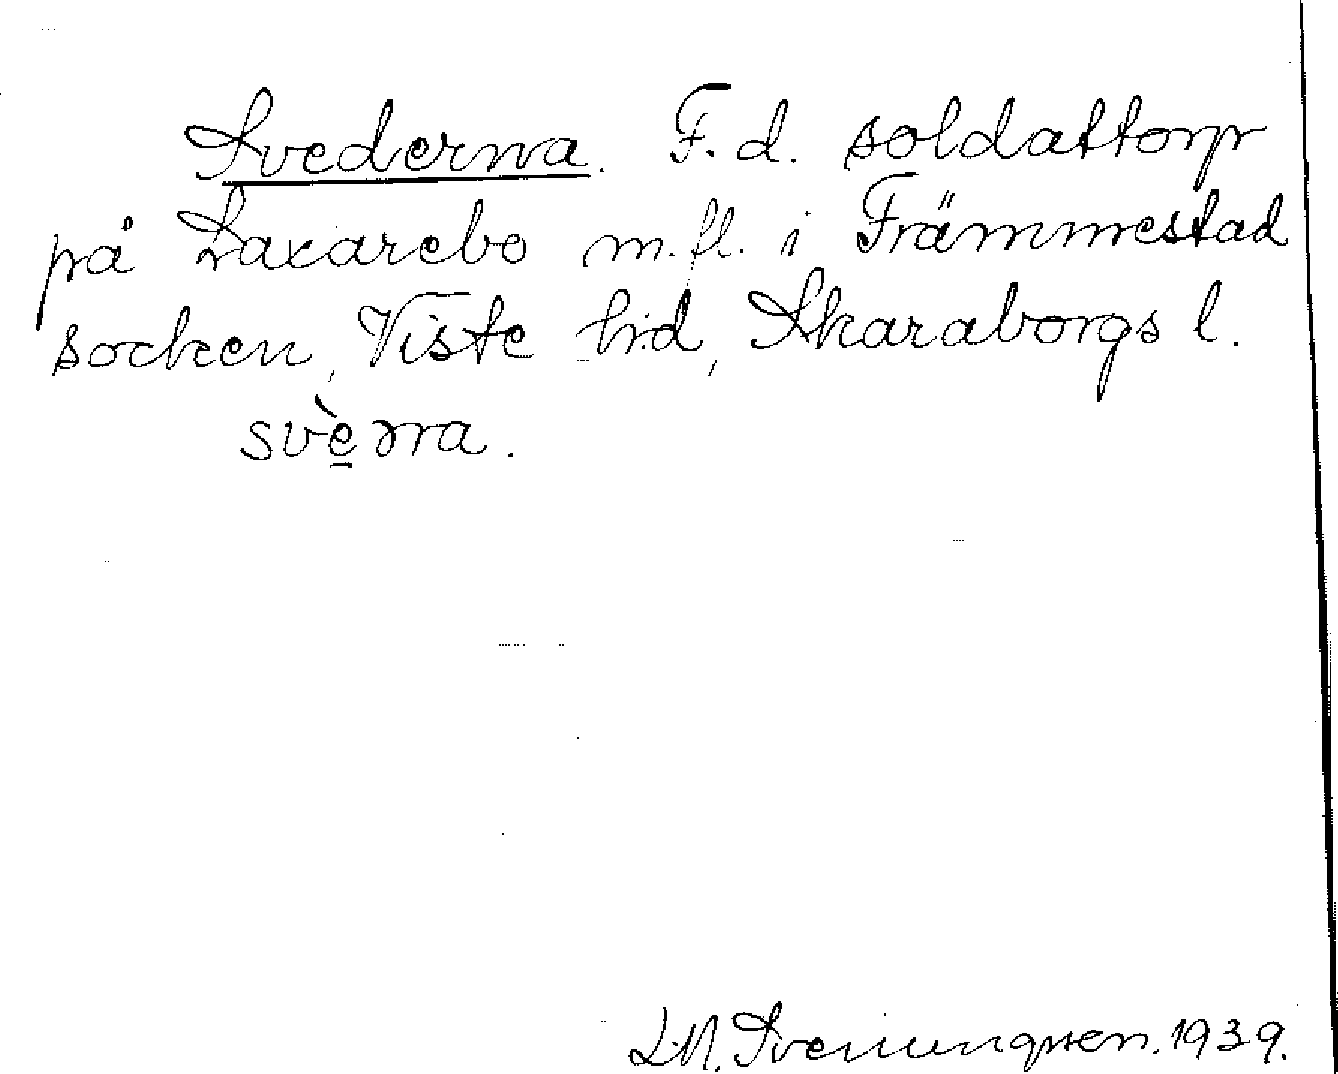 Svederna. F. d. soldattorp
på Laxarebo m. fl. i Främmestad
socken, Viste hd, Skaraborgs l.
svè̱rna.
L.M. Svenungsson. 1939.